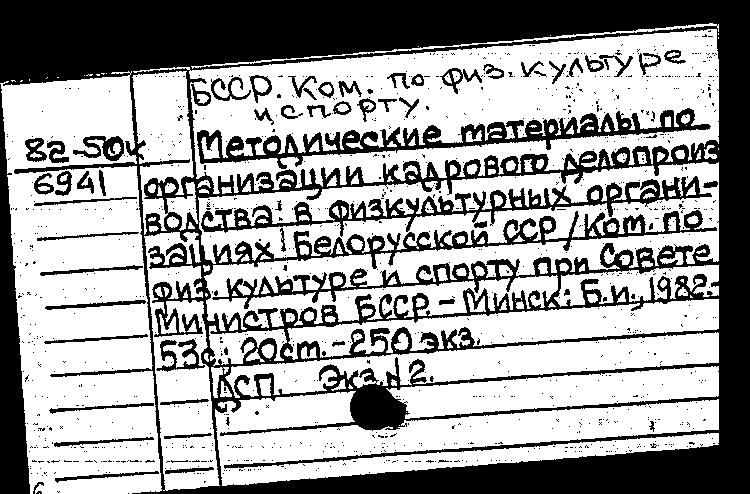 БССР. Ком. по физ. культуре
и спорту.
82-50к
6941
Методические материалы по
организации кадрового делопроиз
водства в физкультурных органи-
зациях Белорусской ССР / Ком. по
физ. культуре и спорту при Совете
Министров БССР. - Минск: Б.и., 1982.-
53с.; 20см. - 250 экз.
ДСП. Экз. N 2.